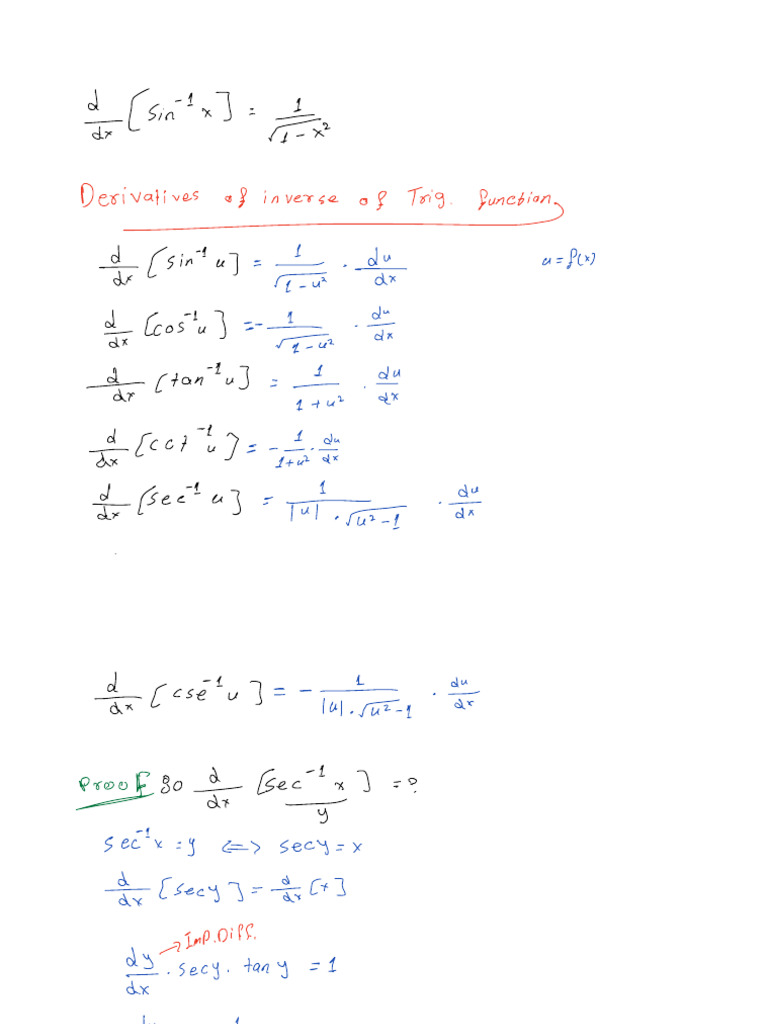 d/dx [sin⁻¹ x] = 1/√(1 - x²)
Derivatives of inverse of Trig. function
d/dx [sin⁻¹ u] = 1/√(1 - u²) · du/dx    u = f(x)
d/dx [cos⁻¹ u] = - 1/√(1 - u²) · du/dx
d/dx [tan⁻¹ u] = 1/(1 + u²) · du/dx
d/dx [cot⁻¹ u] = - 1/(1 + u²) · du/dx
d/dx [sec⁻¹ u] = 1/(|u| · √(u² - 1)) · du/dx
d/dx [cse⁻¹ u] = - 1/(|u| · √(u² - 1)) · du/dx
Proof d/dx [sec⁻¹ x] = ?
y
sec⁻¹ x = y <=> sec y = x
d/dx [sec y] = d/dx [x]
Imp. Diff.
dy/dx · sec y · tan y = 1